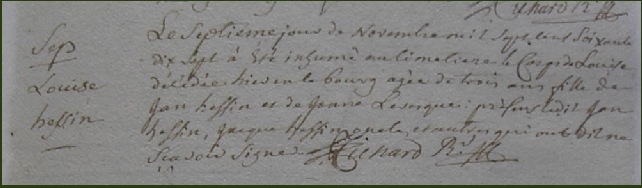 Richard Rr
Sep
Louise
hessin
Le Septieme jour de Novembre mil Sept Cent Soixante
dix Sept à été inhumé au Cimetiere le Corps de Louise
décédée hier en le bourg agée de trois ans fille de
Jean hessin et de Jeanne Levesque: présens ledit Jean
hessin, Jacque hessin oncle, et autres qui ont dit ne
Scavoir Signer Richard Rr